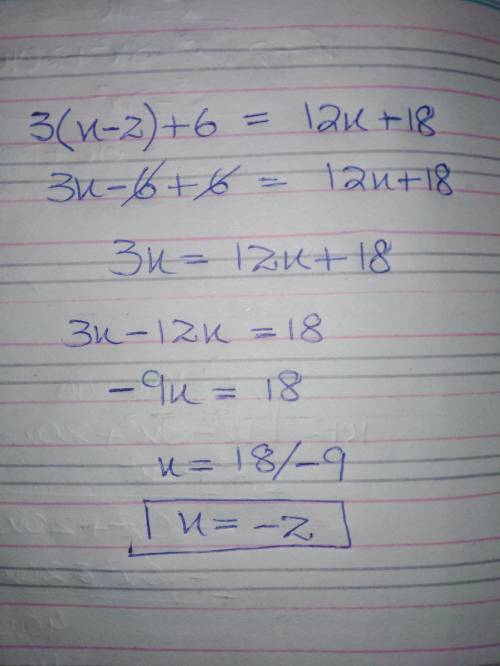 3(x-2)+6 = 12x+18
3x-6+6 = 12x+18
3x = 12x+18
3x-12x = 18
-9x = 18
x = 18/-9
x = -2